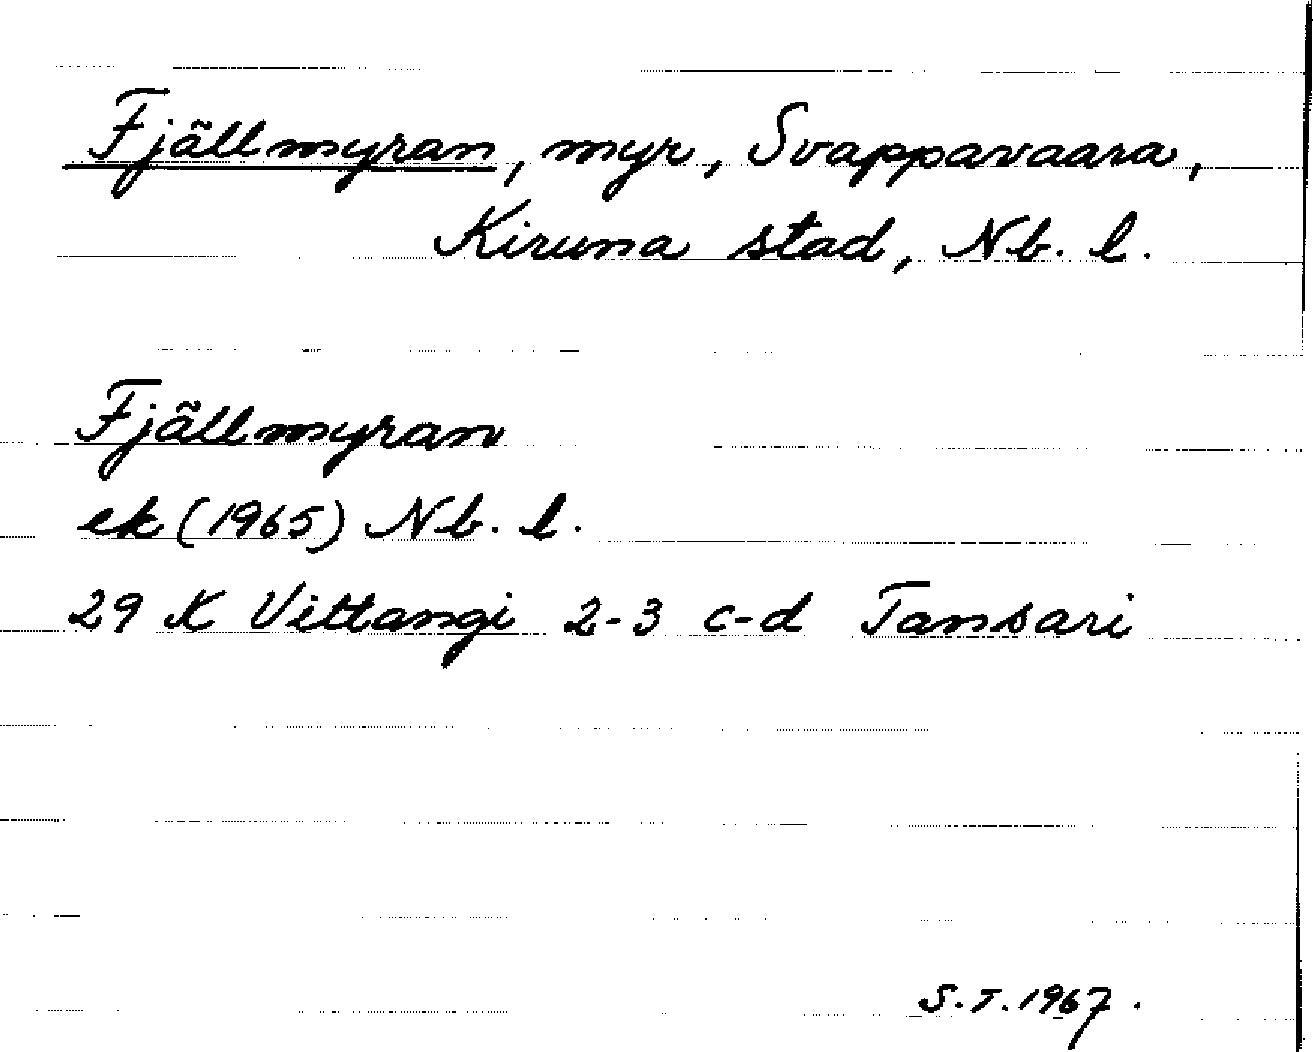 Fjällmyran, myr, Svappavaara,
Kiruna stad, Nb. l.
Fjällmyran
ek (1965) Nb. l.
29 K Vittangi 2-3 c-d Tansari
S.T. 1967.